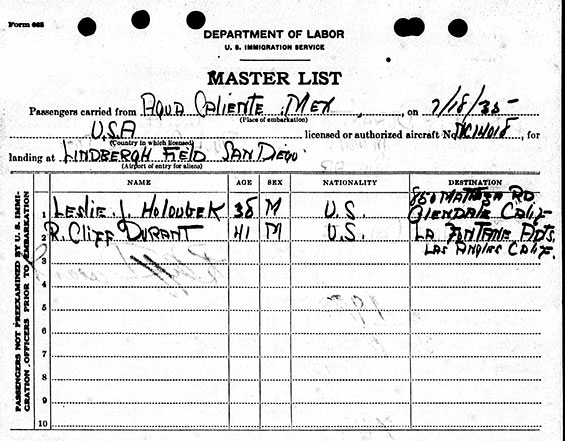 Form 663
DEPARTMENT OF LABOR
U. S. IMMIGRATION SERVICE
MASTER LIST
Passengers carried from AQUA CALIENTE, MEX, on 7/18/35
(Place of embarkation)
U.S.A licensed or authorized aircraft No. NC14018, for
(Country in which licensed)
landing at LINDBERGH FIELD SAN DIEGO.
(Airport of entry for aliens)
NAME AGE SEX NATIONALITY DESTINATION
1 LESLIE. J. HOLOUBEK 38 M U.S RD
GLENDALE CALIF
2 R. CLIFF DURANT 41 M U.S. LA FONTANE APTS.
LOS ANGLES CALIF.
3
4
5
6
7
8
9
10
PASSENGERS NOT PREEXAMINED BY U. S. IMMI-
GRATION OFFICERS PRIOR TO EMBARKATION